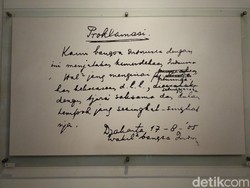 Proklamasi.
Kami bangsa Indonesia dengan
ini menjatakan kemerdekaan Indone
Hal² jang mengenai
kekoeasaan d.l.l.,
dengan tjara saksama dan dalam
tempoh jang sesingkat-singkat
nja.
Djakarta, 17-8-'05
Wakil² bangsa Indon
detikcom